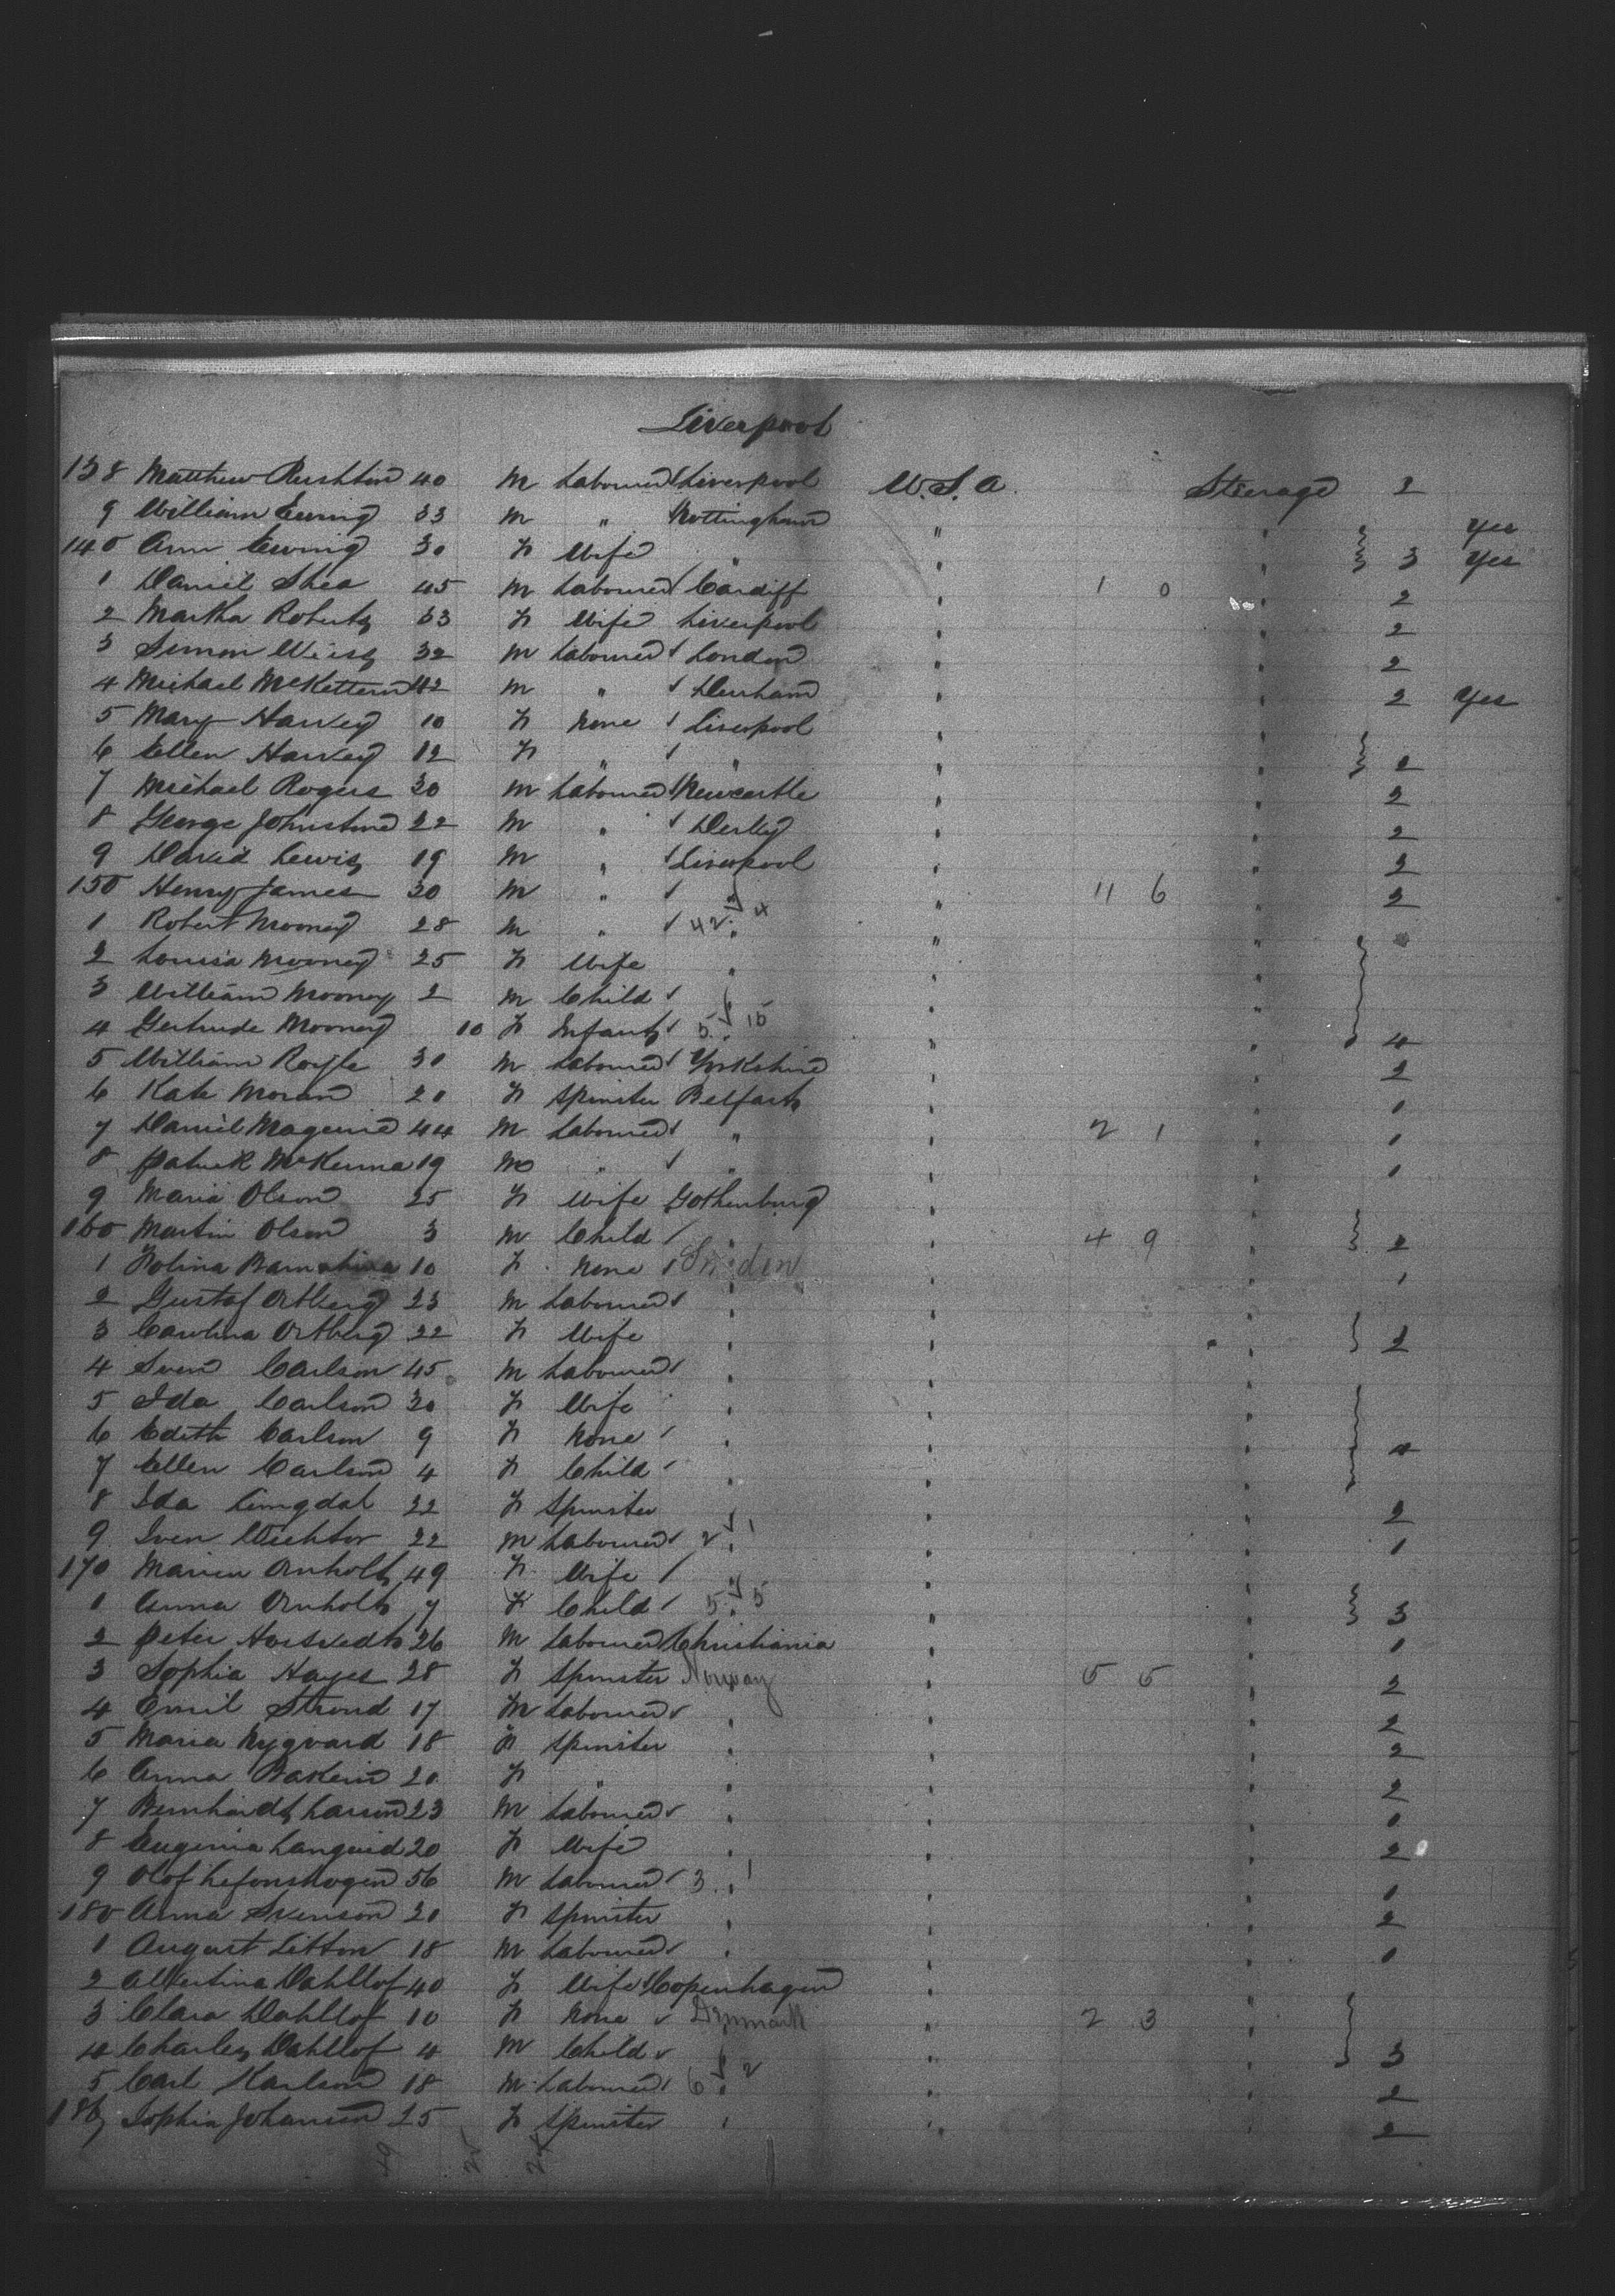 Liverpool
138 Matthew Rushton 40 M Labourer Liverpool U.S.A. Steerage 2
9 William Ewing 33 M " Nottingham " " Yes
140 Ann Ewing 30 F Wife " " " 3 Yes
1 Daniel Shea 45 M Labourer Cardiff " 1 0 " 2
2 Martha Roberts 33 F Wife Liverpool " " 2
3 Simon Weiss 32 M Labourer London " " 2
4 Michael McKettern 42 M " Durham " " 2 Yes
5 Mary Harvey 10 F None Liverpool " "
6 Ellen Harvey 12 F " " " " 2
7 Michael Rogers 30 M Labourer Newcastle " " 2
8 George Johnstone 22 M " Derby " " 2
9 David Lewis 19 M " Liverpool " " 2
150 Henry James 30 M " " " 11 6 " 2
1 Robert Mooney 28 M " 42 " 4 " "
2 Louisa Mooney 25 F Wife " " "
3 William Mooney 2 M Child " " "
4 Gertrude Mooney 10 F Infant 5 " 15 " " 4
5 William Royle 30 M Labourer Yorkshire " " 2
6 Kate Moran 20 F Spinster Belfast " " 1
7 Daniel Maguire 44 M Labourer " " 2 1 " 1
8 Patrick McKenna 19 M " " " " 1
9 Maria Olson 25 F Wife Gothenburg " "
160 Martin Olson 3 M Child " " 4 9 " 2
1 10 F None Sweden " " 1
2 Gustaf Ortberg 23 M Labourer " " "
3 Carolina Ortberg 22 F Wife " " " 2
4 Sven Carlson 45 M Labourer " " "
5 Ida Carlson 30 F Wife " " "
6 Edith Carlson 9 F None " " " 4
7 Ellen Carlson 4 F Child " " "
8 Ida Lingdal 22 F Spinster " " " 2
9 Sven 22 M Labourer 2 " 1 " " 1
170 Ornholt 49 F Wife " " "
1 Anna Ornholt 7 F Child 5 " 5 " " 3
2 Peter 26 M Labourer Christiania " " 1
3 Sophia Hayes 28 F Spinster Norway " 5 5 " 2
4 Emil Strand 17 M Labourer " " " 2
5 Maria Nygvard 18 F Spinster " " " 2
6 Anna 20 F " " " " 2
7 Bernhardt Larson 23 M Labourer " " " 1
8 Eugenia Langvid 20 F Wife " " " 2
9 Olof 56 M Labourer 3 " 1 " " 1
180 Anna Svenson 20 F Spinster " " " 2
1 August Litton 18 M Labourer " " " 1
2 Albertina Dahllof 40 F Wife Copenhagen " "
3 Clara Dahllof 10 F None Denmark " 2 3 "
4 Charles Dahllof 4 M Child " " " 3
5 Carl Karlson 18 M Labourer 6 " 2 " " 2
186 Sophia Johanson 25 F Spinster " " " 2